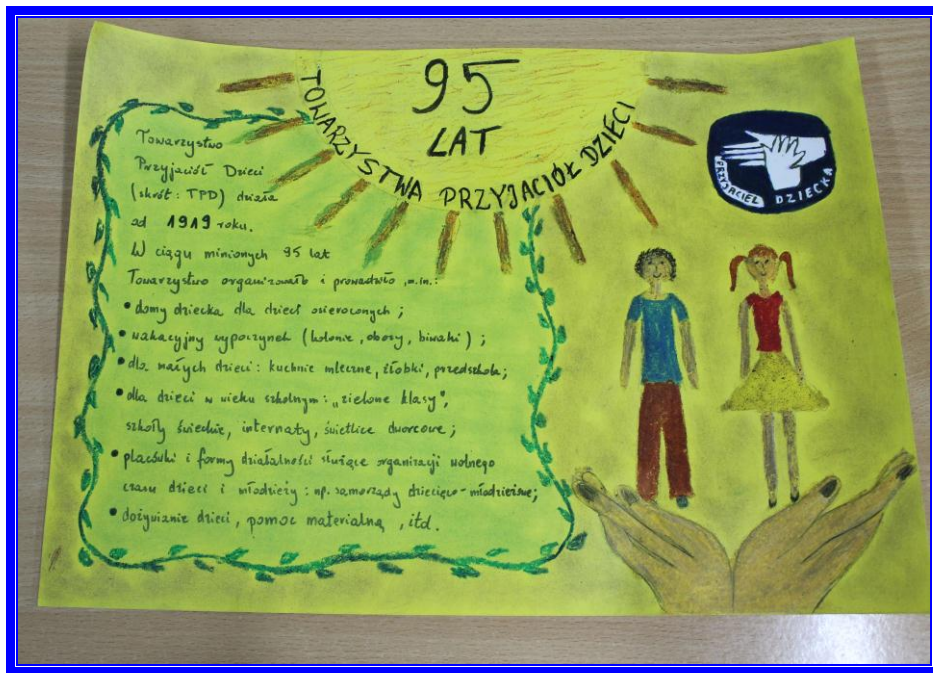 95
LAT
TOWARZYSTWA PRZYJACIÓŁ DZIECI
PRZYJACIEL DZIECKA
Towarzystwo
Przyjaciół Dzieci
(skrót : TPD) działa
od 1919 roku.
W ciągu minionych 95 lat
Towarzystwo organizowało i prowadziło ,m.in.:
• domy dziecka dla dzieci osieroconych ;
• wakacyjny wypoczynek (kolonie , obozy , biwaki ) ;
• dla małych dzieci : kuchnie mleczne, żłobki, przedszkola;
• dla dzieci w wieku szkolnym : „zielone klasy",
szkoły świeckie, internaty, świetlice dworcowe ;
• placówki i formy działalności służące organizacji wolnego
czasu dzieci i młodzieży : np. samorządy dziecięco-młodzieżowe;
• dożywianie dzieci , pomoc materialną , itd.